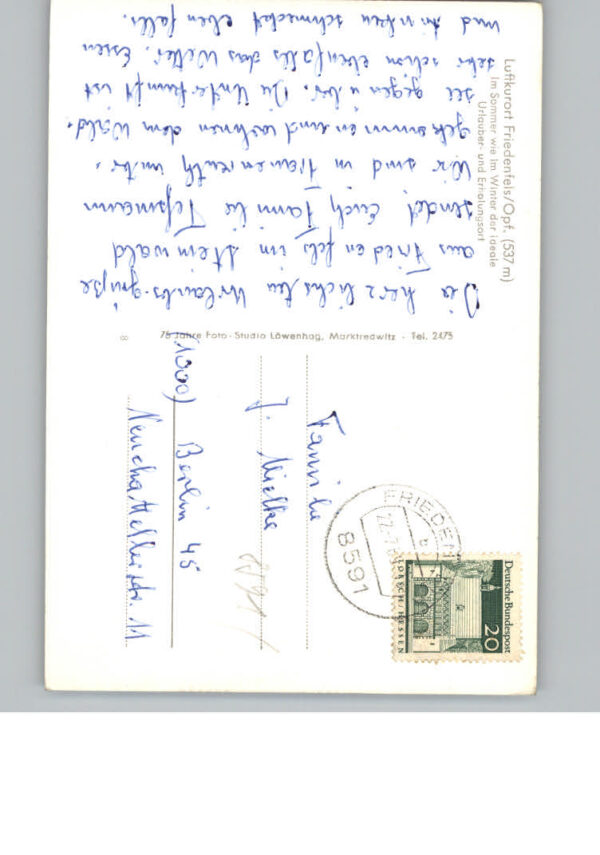 Luftkurort Friedenfels/Opf. (537 m)
Im Sommer wie im Winter der ideale
Urlauber- und Erholungsort
Die herzlichsten Urlaubsgrüße
aus Friedenfels im Steinwald
sendet Euch Familie Teßmann
Wir sind in Frauenreuth unter-
gekommen und wohnen dem Wald.
see gegenüber. Die Unterkunft ist
sehr schön ebenfalls das Wetter. Essen
und trinken schmeckt ebenfalls.
∞ 75 Jahre Foto-Studio Löwenhag, Marktredwitz · Tel. 2475
Familie
J. Mielke
(1000) Berlin 45
Neuchatellerstr. 11
8591
FRIEDEN
b
8591
Deutsche Bundespost
20
LORSCH/HESSEN